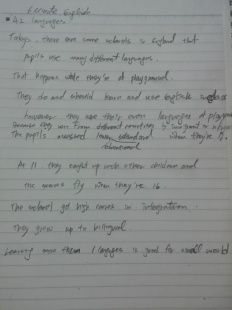 42 languages
Today, there are some schools in England that
pupils use many different languages.
That happens while they're at playground.
They do and should learn and use English
however they use their own languages at playground
Because they come from different countries
The pupils when they're
At 11, they caught up with other children and
the scores fly when they're 16.
The school get high scores in integration.
They grow up to bilingual
Learning more than 1 languages is good for small world